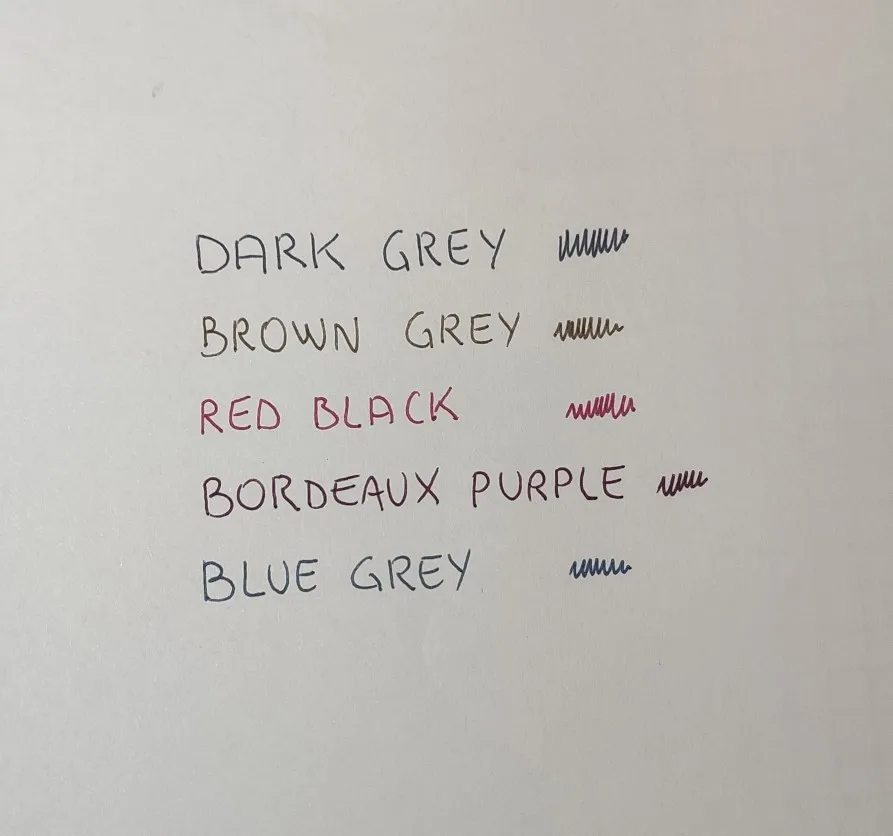 DARK GREY
BROWN GREY
RED BLACK
BORDEAUX PURPLE
BLUE GREY